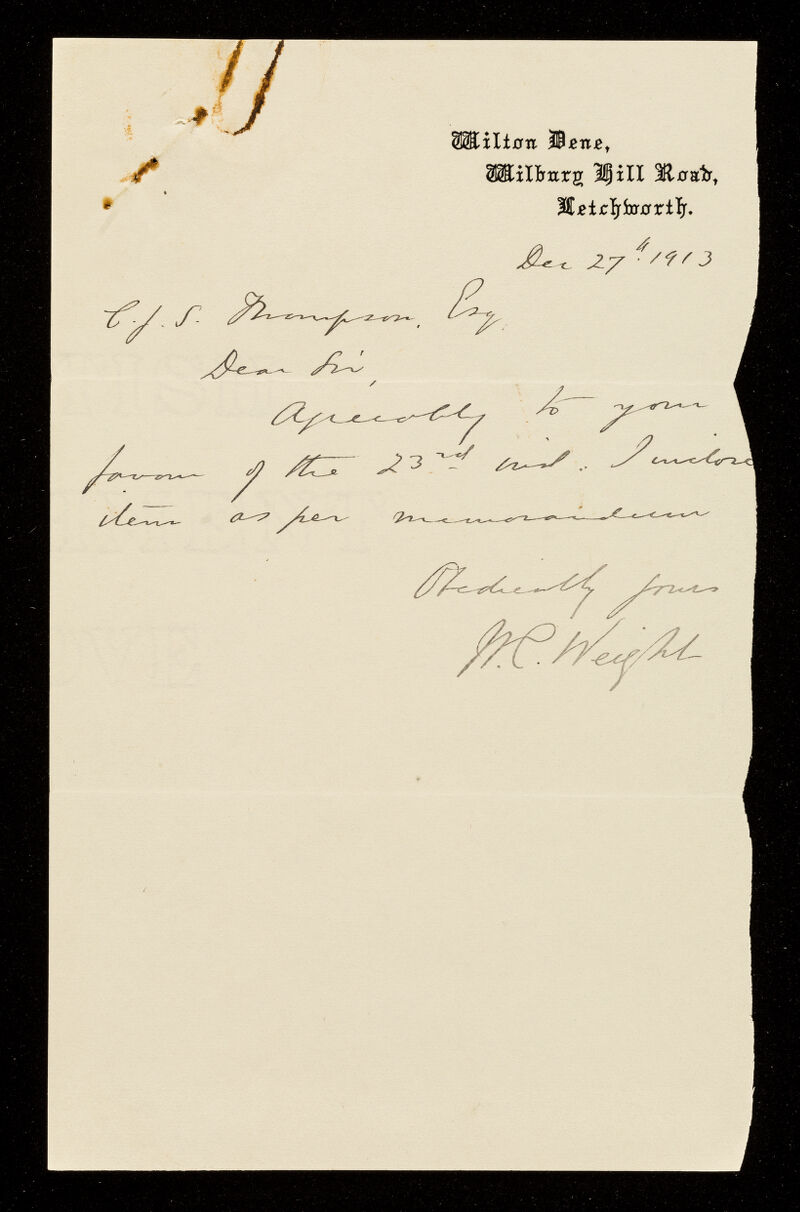 Wilton Dene,
Wilbury Hill Road,
Letchworth.
Dec 27th. 1913
C. J. S. Thompson, Esq.
Dear Sir,
Agreeably to your
favour of the 23rd inst. I inclose
item as per memorandum
Obediently yours
W. C. Weight